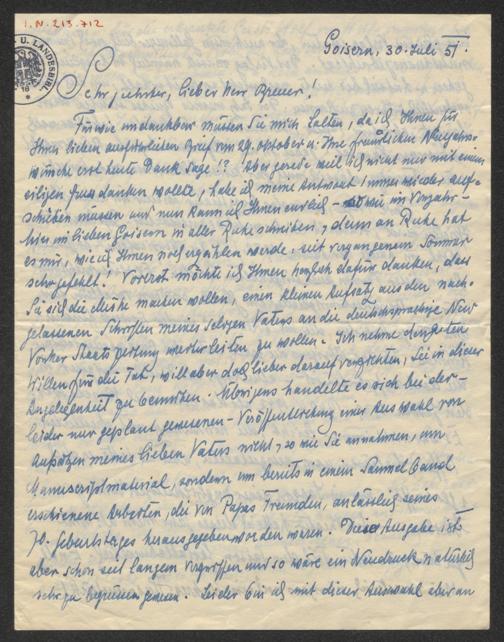 I.N. 213.712
U. LANDESBIBL
Goisern, 30. Juli 51.
Sehr geehrter, lieber Herr Breuer!
Für wie undankbar müssen Sie mich halten, da ich Ihnen für
Ihren lieben ausführlichen Brief vom 29. Oktober u. Ihre freundlichen Neujahrs-
wünsche erst heute Dank sage!? Aber gerade weil ich nicht nur mit einem
eiligen Gruss danken wollte, habe ich meine Antwort immer wieder auf-
schieben müssen und nun kann ich Ihnen endlich – wie im Vorjahr –
hier im lieben Goisern in aller Ruhe schreiben, denn an Ruhe hat
es mir, wie ich Ihnen noch erzählen werde, seit vergangenem Sommer
sehr gefehlt! Vorerst möchte ich Ihnen herzlich dafür danken, dass
Sie sich die Mühe machen wollen, einen kleinen Aufsatz aus den nach-
gelassenen Schriften meines seligen Vaters an die deutschsprachige New
Yorker Staatszeitung weiterleiten zu wollen. Ich nehme den guten
Willen für die Tat, will aber doch lieber darauf verzichten, Sie in dieser
Angelegenheit zu bemühen. Übrigens handelte es sich bei der –
leider nur geplant gewesenen – Veröffentlichung einer Auswahl von
Aufsätzen meines lieben Vaters nicht, so wie Sie annahmen, um
Manuscriptmaterial, sondern um bereits in einem Sammelband
erschienene Arbeiten, die von Papas Freunden, anlässlich seines
70. Geburtstages herausgegeben worden waren. Diese Ausgabe ist
aber schon seit langem vergriffen und so wäre ein Neudruck natürlich
sehr zu begrüssen gewesen. Leider bin ich mit dieser Auswahl aber an